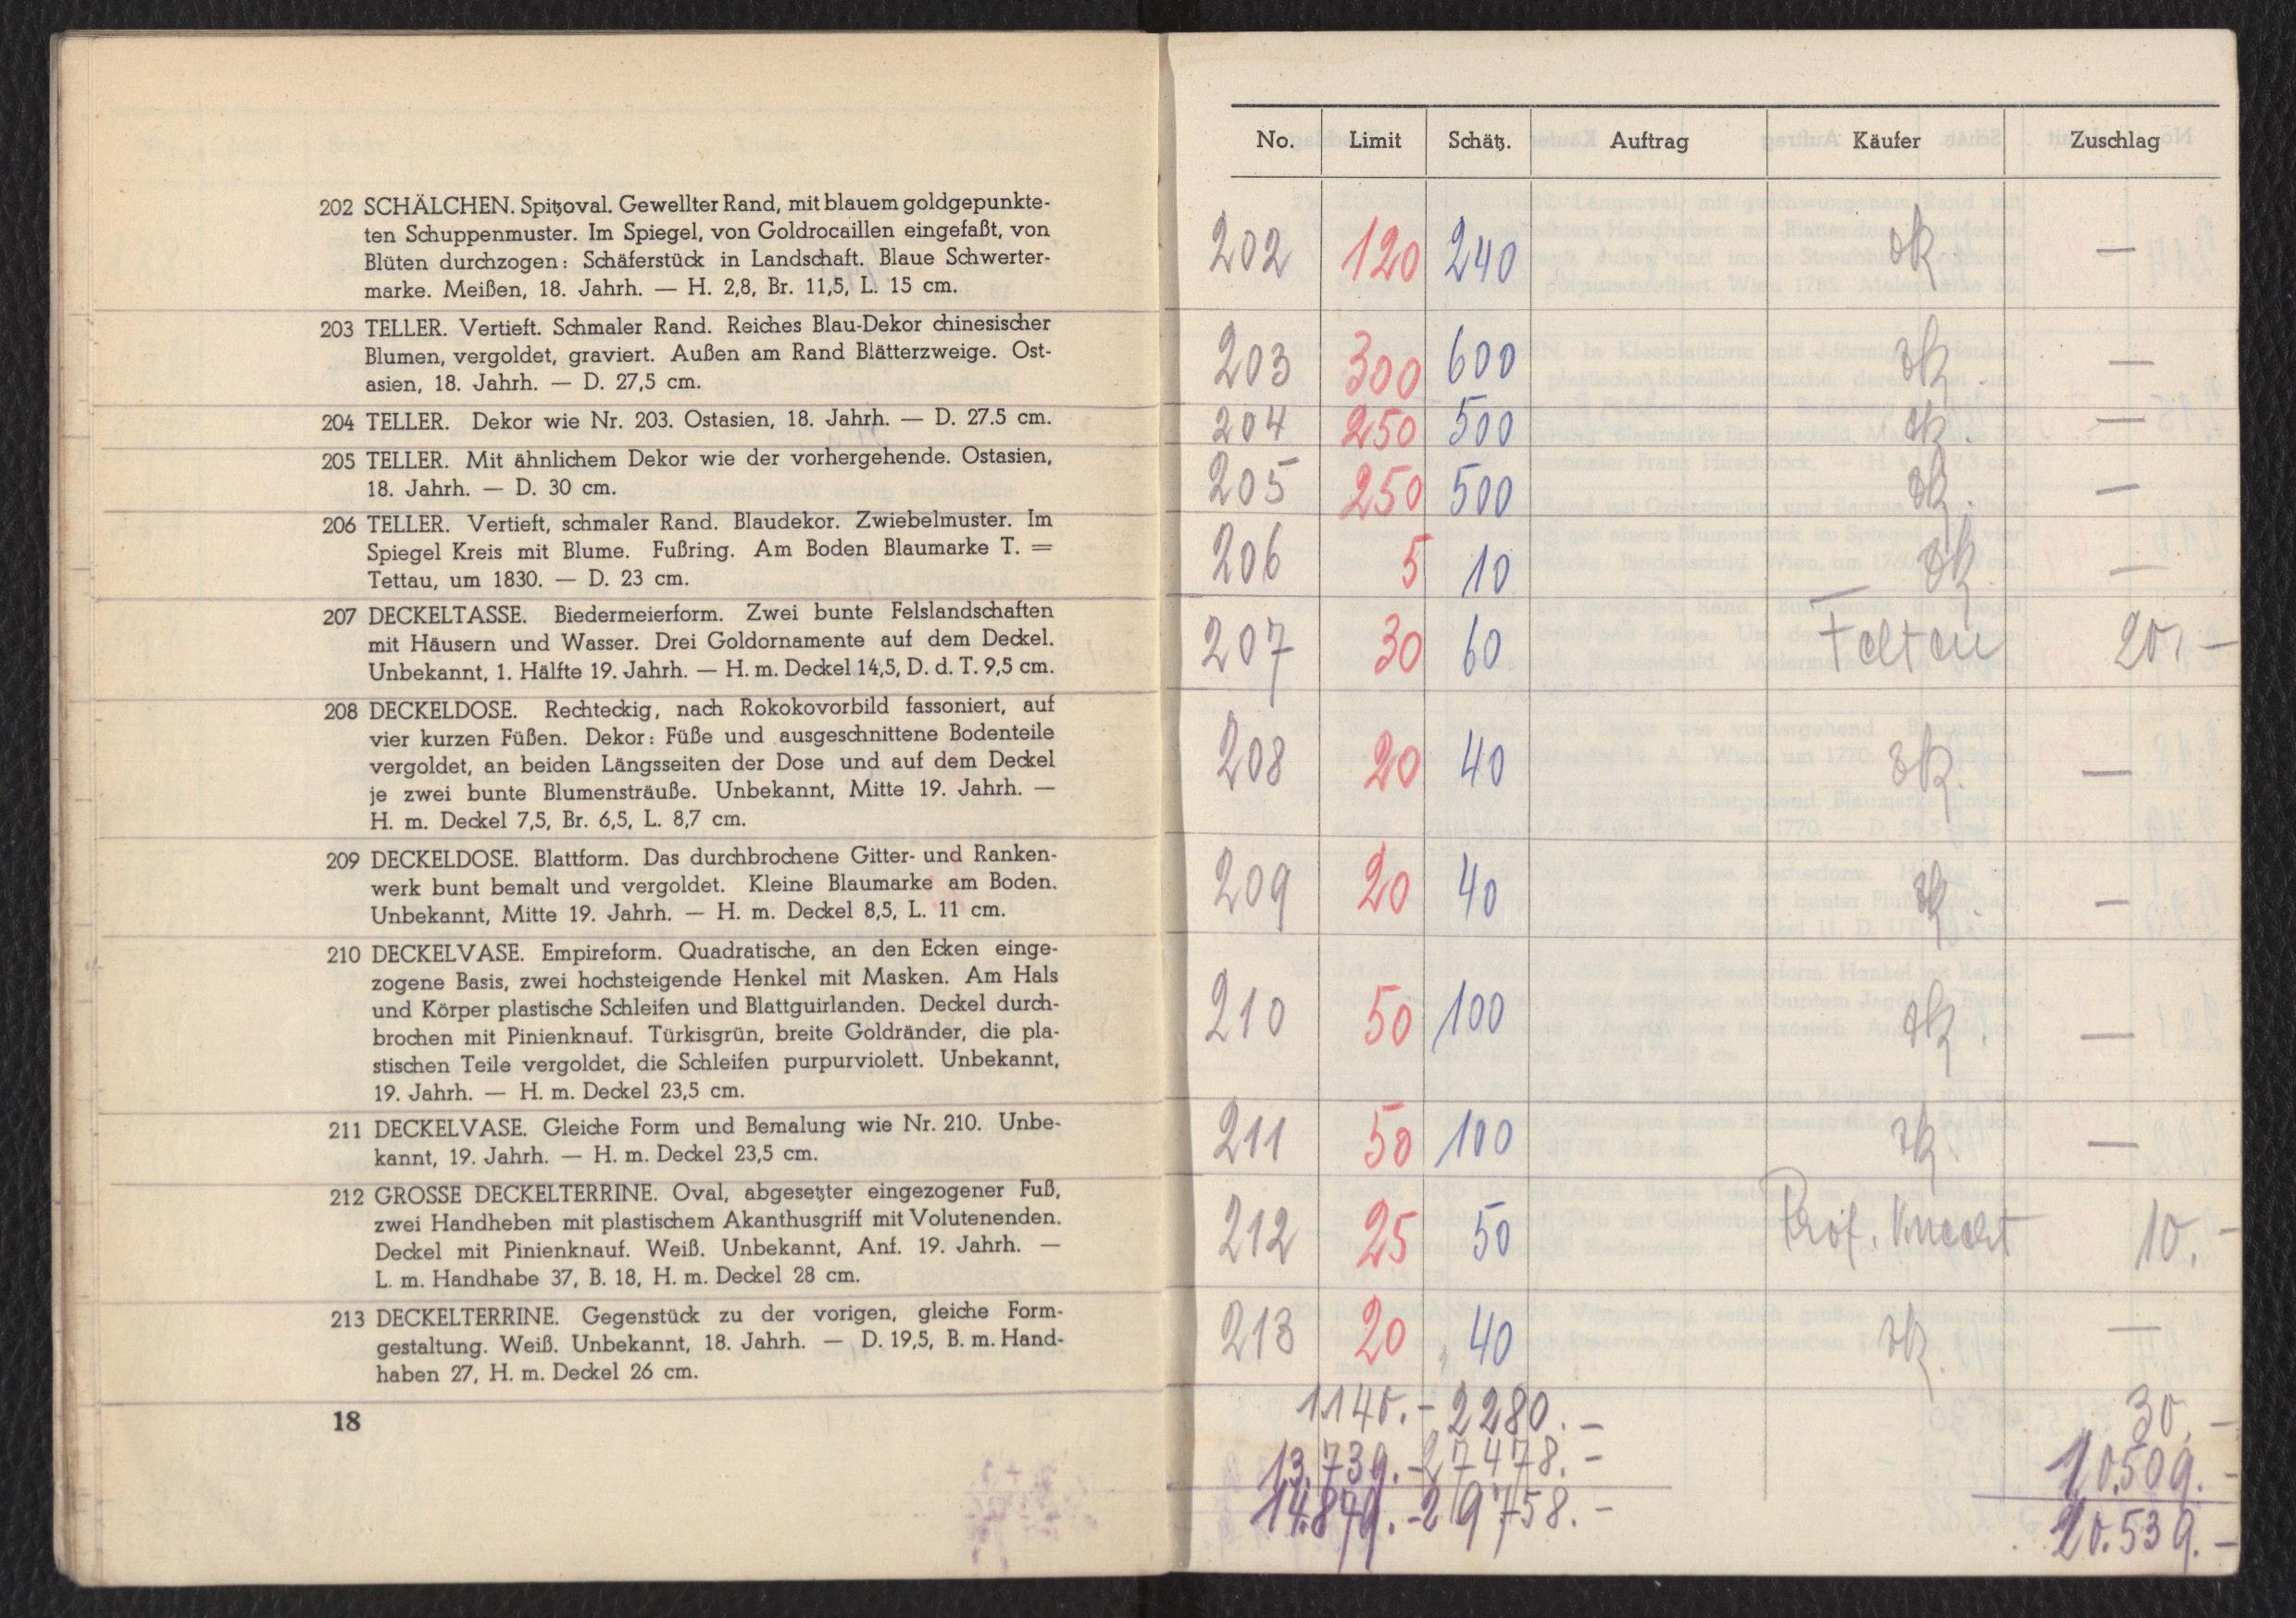 202 SCHÄLCHEN. Spitzoval. Gewellter Rand, mit blauem goldgepunkte-
ten Schuppenmuster. Im Spiegel, von Goldrocaillen eingefaßt, von
Blüten durchzogen: Schäferstück in Landschaft. Blaue Schwerter-
marke. Meißen, 18. Jahrh. — H. 2,8, Br. 11,5, L. 15 cm.
203 TELLER. Vertieft. Schmaler Rand. Reiches Blau-Dekor chinesischer
Blumen, vergoldet, graviert. Außen am Rand Blätterzweige. Ost-
asien, 18. Jahrh. — D. 27,5 cm.
204 TELLER. Dekor wie Nr. 203. Ostasien, 18. Jahrh. — D. 27.5 cm.
205 TELLER. Mit ähnlichem Dekor wie der vorhergehende. Ostasien,
18. Jahrh. — D. 30 cm.
206 TELLER. Vertieft, schmaler Rand. Blaudekor. Zwiebelmuster. Im
Spiegel Kreis mit Blume. Fußring. Am Boden Blaumarke T. =
Tettau, um 1830. — D. 23 cm.
207 DECKELTASSE. Biedermeierform. Zwei bunte Felslandschaften
mit Häusern und Wasser. Drei Goldornamente auf dem Deckel.
Unbekannt, 1. Hälfte 19. Jahrh. — H. m. Deckel 14,5, D. d. T. 9,5 cm.
208 DECKELDOSE. Rechteckig, nach Rokokovorbild fassoniert, auf
vier kurzen Füßen. Dekor: Füße und ausgeschnittene Bodenteile
vergoldet, an beiden Längsseiten der Dose und auf dem Deckel
je zwei bunte Blumensträuße. Unbekannt, Mitte 19. Jahrh. —
H. m. Deckel 7,5, Br. 6,5, L. 8,7 cm.
209 DECKELDOSE. Blattform. Das durchbrochene Gitter- und Ranken-
werk bunt bemalt und vergoldet. Kleine Blaumarke am Boden.
Unbekannt, Mitte 19. Jahrh. — H. m. Deckel 8,5, L. 11 cm.
210 DECKELVASE. Empireform. Quadratische, an den Ecken einge-
zogene Basis, zwei hochsteigende Henkel mit Masken. Am Hals
und Körper plastische Schleifen und Blattguirlanden. Deckel durch-
brochen mit Pinienknauf. Türkisgrün, breite Goldränder, die pla-
stischen Teile vergoldet, die Schleifen purpurviolett. Unbekannt,
19. Jahrh. — H. m. Deckel 23,5 cm.
211 DECKELVASE. Gleiche Form und Bemalung wie Nr. 210. Unbe-
kannt, 19. Jahrh. — H. m. Deckel 23,5 cm.
212 GROSSE DECKELTERRINE. Oval, abgesetzter eingezogener Fuß,
zwei Handheben mit plastischem Akanthusgriff mit Volutenenden.
Deckel mit Pinienknauf. Weiß. Unbekannt, Anf. 19. Jahrh. —
L. m. Handhabe 37, B. 18, H. m. Deckel 28 cm.
213 DECKELTERRINE. Gegenstück zu der vorigen, gleiche Form-
gestaltung. Weiß. Unbekannt, 18. Jahrh. — D. 19,5, B. m. Hand-
haben 27, H. m. Deckel 26 cm.
18
No. Limit Schätz. Auftrag Käufer Zuschlag
202 120 240 —
203 300 600 —
204 250 500 —
205 250 500 —
206 5 10 —
207 30 60 Felten 20.—
208 20 40 —
209 20 40 —
210 50 100 —
211 50 100 —
212 25 50 Prof. Knecht 10.—
213 20 40 —
1140.- 2280.- 30.-
13.739.- 27478.- 10.509.-
14.879.- 29758.- 10.539.-